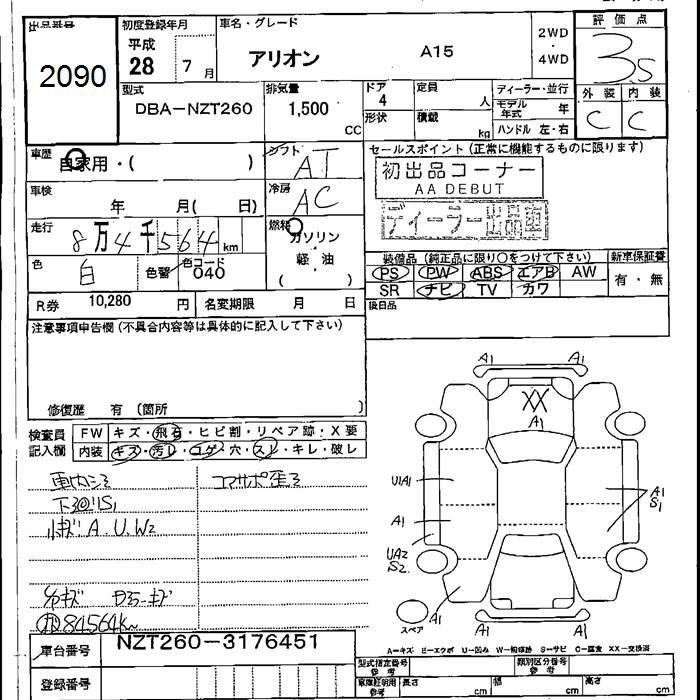 出品番号 初度登録年月 車名・グレード 評価点
2090
平成 28 7 月
アリオン A15
2WD ・ 4WD
3.5
外装 内装
C C
型式 DBA-NZT260
排気量 1,500 CC
ドア 4 定員 人
形状 積載 kg
ディーラー・並行
モデル年式 年
ハンドル 左・右
車歴 自家用・( )
シフト AT
セールスポイント (正常に機能するものに限ります)
初出品コーナー
AA DEBUT
ディーラー出品車
車検 年 月( 日)
冷房 AC
走行 8万4千564 km
燃料 ガソリン 軽・油 ( )
色 白 色替 色コード 040
装備品 (純正品に限り○をつけて下さい) 新車保証書
PS PW ABS エアB AW
SR ナビ TV カワ
有・無
R券 10,280 円 名変期限 月 日
後日品
注意事項申告欄 (不具合内容等は具体的に記入して下さい)
修復歴 有 (箇所 )
検査員記入欄
FW キズ・飛石・ヒビ割・リペア跡・X要
内装 キズ・汚レ・コゲ・穴・スレ・キレ・破レ
下回りS1
小キズ A.U.W2
84564k
A1 A1
XX
A1
U1A1
A1
UA2
S2
A1
S1
A1 A1
スペア
A-キズ E-エクボ U-凹み W-補修跡 S-サビ C-腐食 XX-交換済
車台番号 NZT260-3176451
登録番号
型式指定番号 参考 類別区分番号 参考
車庫証明用 参考 長さ cm 幅 cm 高さ cm